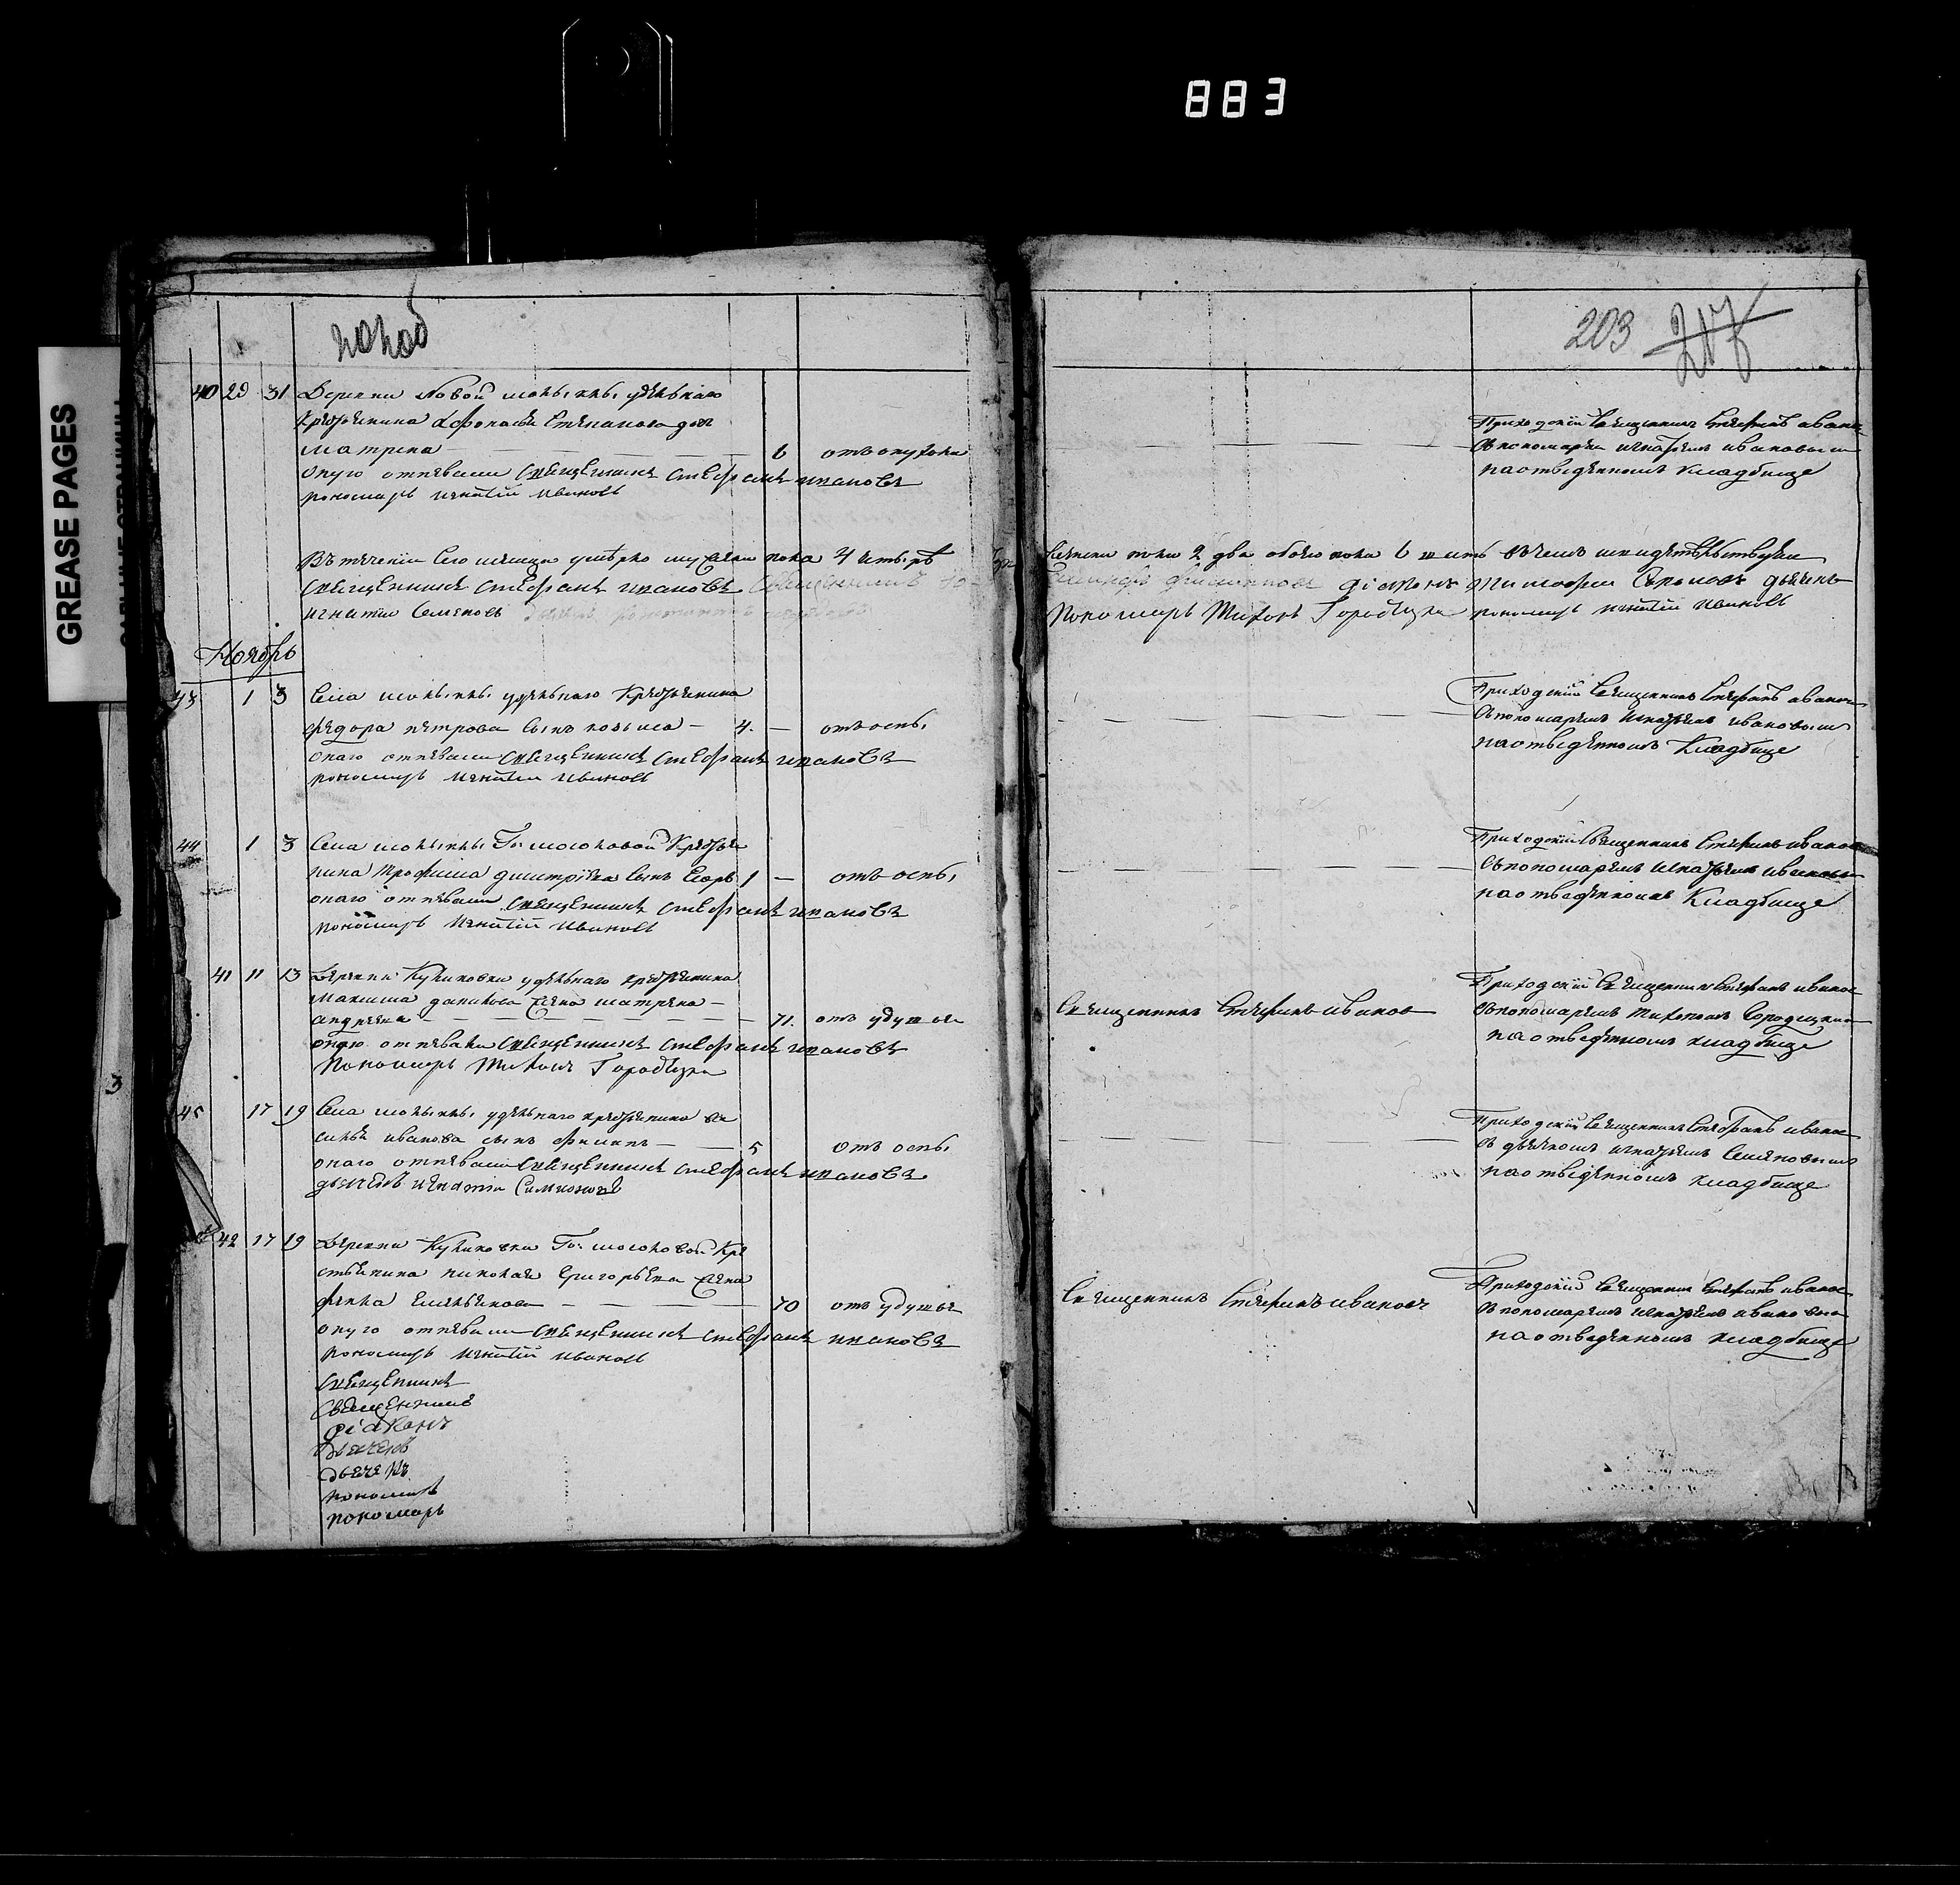 883
GREASE PAGES
203 217
40 29 31 Деревни Новой удельнаго
крестьянина Афонасья Степанова дочь
Матрена 6 отъ опухоли
оную отпевали священникъ Стефанъ Ивановъ
пономарь Игнатий Ивановъ
Приходский священникъ Стефанъ Иванов
съ пономаремъ Игнатьемъ Ивановым
на отведенномъ кладбище
Въ течении сего месяца умерло мужеска пола 4 четыре
женска пола 2 два обоего пола 6 шесть въ чемъ и свидетельствуем
священникъ Стефанъ Ивановъ священникъ
диаконъ Тимофей дьячекъ
Игнатий Семеновъ
Пономарь Тихонъ Городецкий пономарь Игнатий Ивановъ
Ноябрь
43 1 3 Села удельнаго крестьянина
Федора Петрова сынъ Козьма 4. отъ оспы
онаго отпевали священникъ Стефанъ Ивановъ
пономарь Игнатий Ивановъ
Приходский священникъ Стефанъ Иванов
съ пономаремъ Игнатьемъ Ивановым
на отведенномъ кладбище
44 1 3 Села Гжи Молоховой крестья
нина Трофима Дмитриева сынъ Егоръ 1 отъ оспы
онаго отпевали священникъ Стефанъ Ивановъ
пономарь Игнатий Ивановъ
Приходский священникъ Стефанъ Иванов
съ пономаремъ Игнатьемъ Ивановым
на отведенномъ кладбище
41 11 13 Деревни Куликовки удельнаго крестьянина
Максима Данилова жена Матрена
Андреева 71. отъ удушья
оную отпевали священникъ Стефанъ Ивановъ
Пономарь Тихонъ Городецкий
Священникъ Стефанъ Иванов
Приходский священникъ Стефанъ Иванов
съ пономаремъ Тихономъ Городецким
на отведенномъ кладбище
45 17 19 Села удельнаго крестьянина Ва
силья Иванова сынъ Филипъ 5 отъ оспы
онаго отпевали священникъ Стефанъ Ивановъ
дьячекъ Игнатий Симионовъ
Приходский священникъ Стефанъ Иванов
съ дьячкомъ Игнатьемъ Семеновым
на отведенномъ кладбище
42 17 19 Деревни Куликовки Гжи Молоховой кре
стьянина Николая Григорьева жена
Фекла Емельянова 70 отъ удушья
оную отпевали священникъ Стефанъ Ивановъ
пономарь Игнатий Ивановъ
Священникъ Стефанъ Ивановъ
Приходский священникъ Стефанъ Иванов
съ пономаремъ Игнатьемъ Иванов
на отведенномъ кладбище
священникъ
священникъ
диаконъ
дьячекъ
дьячекъ
пономарь
пономарь